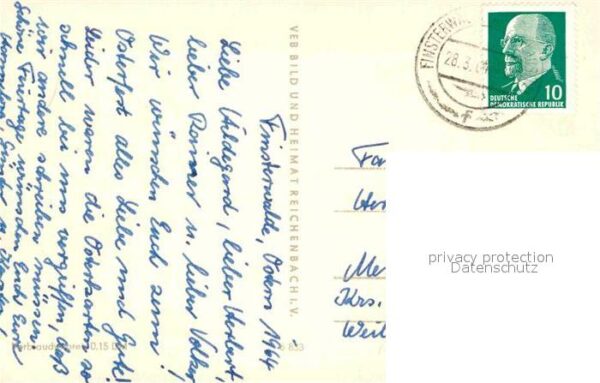 Finsterwalde, Ostern 1964
Liebe Hildegard, lieber Herbert,
lieber Rainer u. lieber Volker!
Wir wünschen Euch zum
Osterfest alles Liebe und Gute!
Leider waren die Osterkarten so
schnell bei uns vergriffen, daß
wir andere schreiben müssen.
Schöne Feiertage wünschen Euch Eure
VEB BILD UND HEIMAT REICHENBACH i. V.
FINSTERWA
28.3.64
10
DEUTSCHE
DEMOKRATISCHE REPUBLIK
Me
Krs.
Weil
privacy protection
Datenschutz
0,15 DM